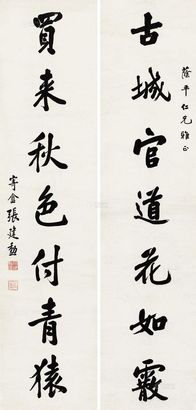 古城官道花如霰
蔭平仁兄雅正
買来秋色付青猿
寄盦張建勳